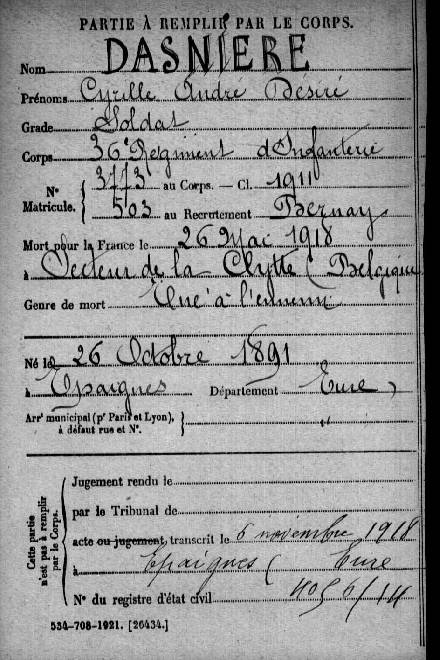 PARTIE À REMPLIR PAR LE CORPS.
Nom DASNIERE
Prénoms Cyrille André Désiré
Grade Soldat
Corps 36e Régiment d'Infanterie
N° Matricule. { 3773 au Corps. — Cl. 1911
503 au Recrutement Bernay
Mort pour la France le 26 Mai 1918
à Secteur de la Clytte (Belgique
Genre de mort Tué à l'ennemi
Né le 26 Octobre 1891
à Epaignes Département Eure
Arrt municipal (pr Paris et Lyon), } "
à défaut rue et N°.
Cette partie n'est pas à remplir par le Corps.
Jugement rendu le
par le Tribunal de
acte ou jugement, transcrit le 6 novembre 1918
à Epaignes (Eure
N° du registre d'état civil
534-708-1921. [26434.]